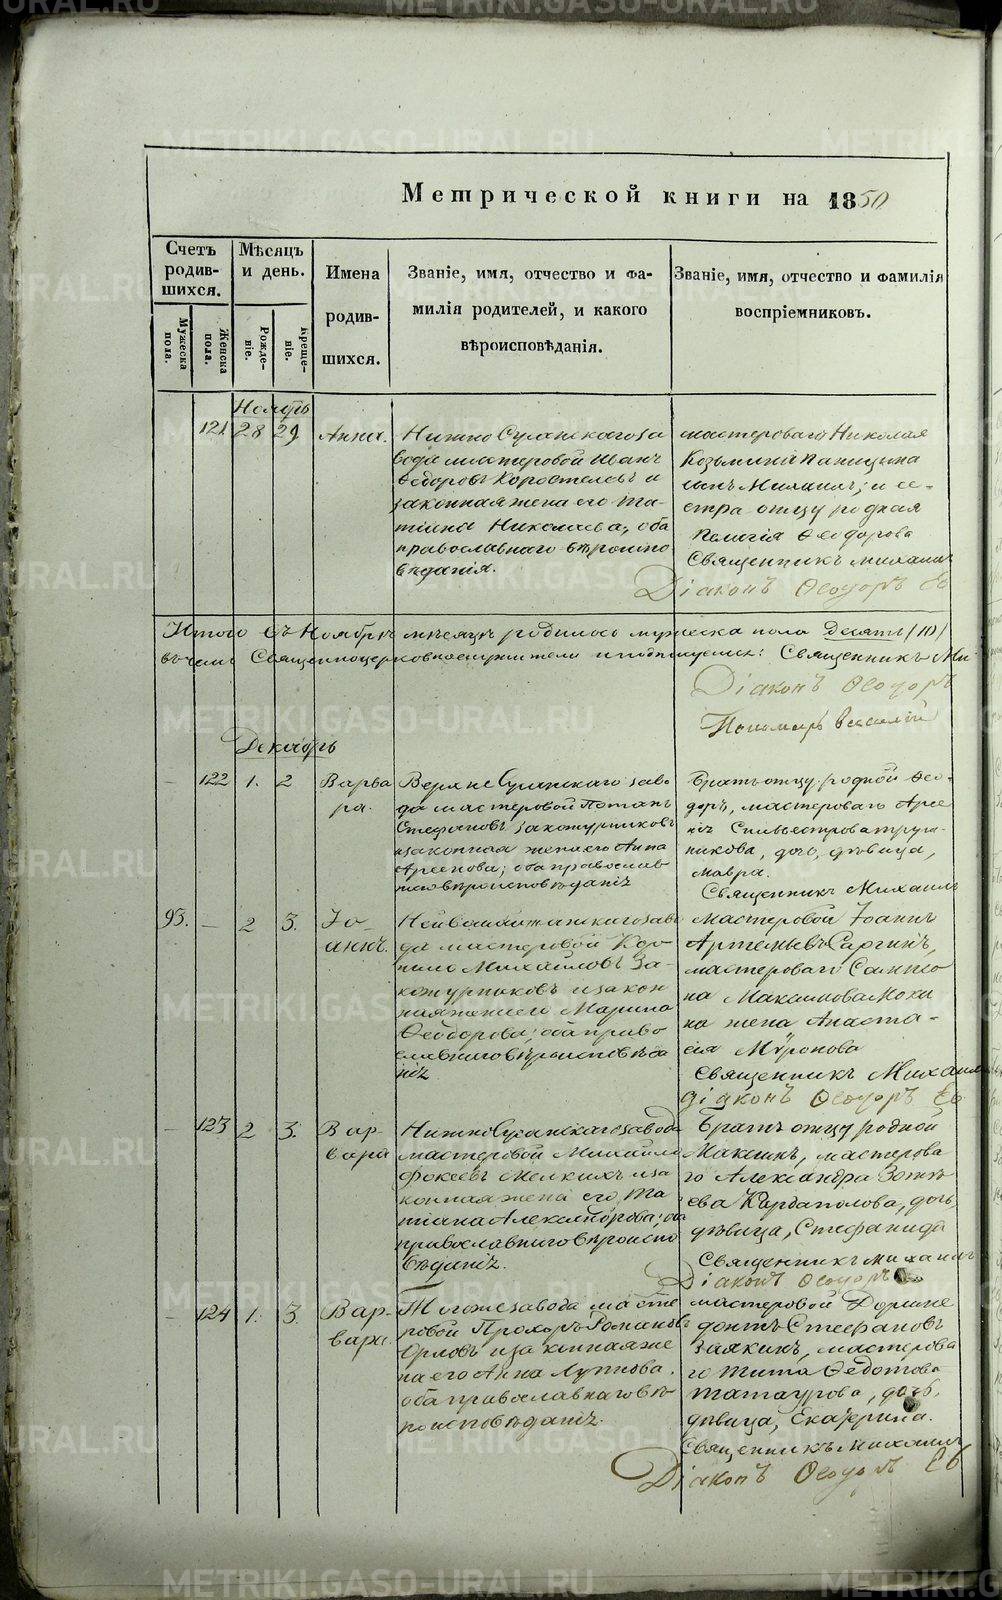 Метрической книги на 1850
Счетъ родив-шихся.
Мужеска пола.
Женска пола.
Мѣсяцъ и день.
Рожде-ніе.
Креще-ніе.
Имена
родив-
шихся.
Званіе, имя, отчество и фа-
милія родителей, и какого
вѣроисповѣданія.
Званіе, имя, отчество и фамилія
воспріемниковъ.
Ноябрь
121 28 29 Анна.
вода мастеровой Иванъ
Ѳедоровъ Коростелевъ и
законная жена его Та-
тіана Николаева; оба
православнаго вѣроиспо
вѣданія.
мастероваго Николая
Козьмина
сынъ Михаилъ; и се-
стра отцу родная
Пелагія Ѳеодорова
Священникъ Михаилъ
Діаконъ Ѳеодоръ
Итого въ Ноябрѣ мѣсяцѣ родилось мужеска пола Десять (10)
въ чемъ Священноцерковнослужители и подписуемся: Священникъ Ми
Діаконъ Ѳеодоръ
Пономарь Василій
Декабрь
122 1. 2 Варва
ра.
да мастеровой Потапъ
Стефановъ Закожурниковъ
и законная жена его Анна
Арсенова; оба православ
Братъ отцу родной Ѳео-
доръ, мастероваго Арсе
нікова, дочь, дѣвица,
Мавра.
Священникъ Михаилъ
93. — 2 3. Іо-
аннъ.
да мастеровой Кор-
нило Михайловъ За-
кожурниковъ и закон
ная жена его Марина
Ѳеодорова; оба право
славнаго вѣроисповѣда
ніѣ
мастеровой Іоаннъ
Артемьевъ Саргинъ,
мастероваго
на Максимова Мохи
на жена Анаста-
сія Миронова
Священникъ Михаилъ
Діаконъ Ѳеодоръ
— 123 2 3. Вар-
вара
Нижносуланскаго завода
мастеровой Михайло
Фокеевъ Мелкихъ и за
конная жена его Та-
тіана Александрова; оба
православнаго вѣроиспо
вѣданіѣ.
Братъ отцу родной
Максимъ, мастерова
го Александра Зоте
ева Кардаполова, дочь,
дѣвица, Стефанида
Священникъ Михаилъ
Діаконъ Ѳеодоръ
— 124 1. 3. Вар-
вара.
Того же завода масте
ровой Прохоръ Романовъ
Орловъ и законная же
на его Анна Луппова.
оба православнаго вѣ
роисповѣданіѣ.
мастеровой Дориме
донтъ Стефановъ
Заякинъ, мастерова
го Тита Ѳедотова
Татаурова, дочь,
дѣвица, Екатерина.
Священникъ Михаилъ
Діаконъ Ѳеодоръ Ев
METRIKI.GASO-URAL.RU